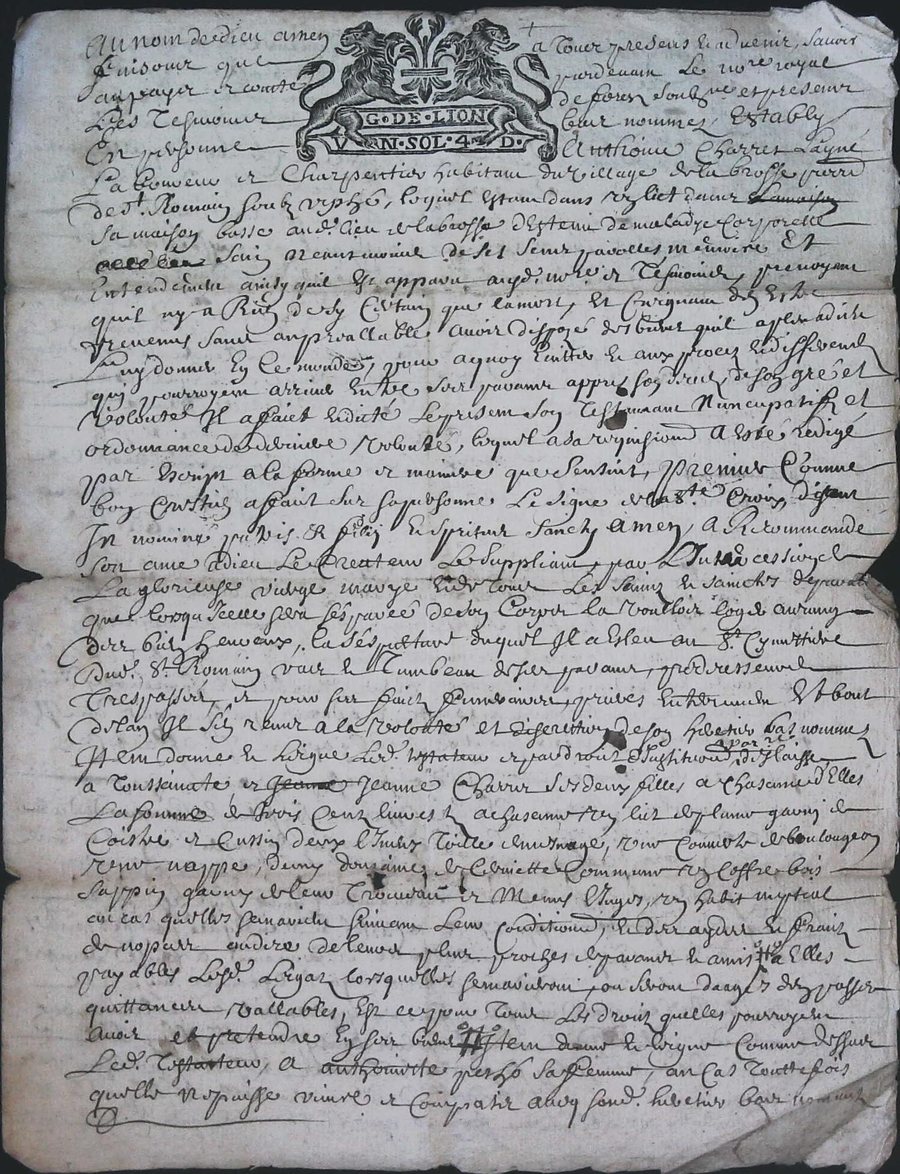 Au nom de dieu amen
a tous presens et advenir, savoir
faisons que
pardevant le no.re royal
au pays et comté
de forez soubz.né et presens
les tesmoins
bas nommez, Estably
G·DE·LION
V N·SOL·4 D·
En personne
Anthoine Charret Layné
Laboureur et Charpentier habitant du village de la brosse parr.
de St. Romain lequel estant dans
sa maison basse aud. lieu de la brosse destenu de maladye Corporelle
Sain neantmoins de ses sens parolles memoire Et
Entendement ainsy quil Est apparu aud. no.re et tesmoins, prevoyant
quil ny a Rien de sy Certain que la mort, Et Craignant den Estre
prevenus sans au preallable avoir disposé des biens quil a pleu a dieu
luy donner En Ce monde, pour a quoy Eviter et aux proces et differends
quy pourroyent arriver Entre ses parans appres son deces, de son gré et
volonté Il a faict et dicté le presant son Testament Nuncupatif et
ordonnance de derniere volonté, lequel a sa requisition a Esté redigé
par Escript a la forme et maniere que sensuit, Premier Comme
bon Crestien a faict sur sa personne le signe de la Ste Croix, disant
In nomine patris & filii et spiritus Sancty amen, a Recommandé
son ame a dieu le Createur le suppliant, par L'Intercession de
La glorieuse vierge marye et de tous les saincts et sainctes de paradis
que lorsqu Icelle sera sesparée de son Corps la vouloir loger au rang
des bien heureux, la sespulture duquel Il a Esleu au Cymettiere
dud. St. Romain vers le Tumbeau de ses parans, predecesseurs
Trespassez, et pour ses fraicts funeraires, prieres Enterrement Et bout
de lan Il s'En remet a la volonté et discretion de son heretier bas nommez
Item donne et legue led. testateur et par droict d'Institution delaisse
a Toussaincte et Jeanne Charret ses deux filles a chascune d'Elles
La somme de trois Cent livres a chascune un lict de plume garny de
Coistre et Cussin deux linceux toille de mesnage, une Couverte de boulougeon
une nappe, demy douzaine de serviette Commune un Coffre bois
sappin garny de leur Trousseau et Menus linges, un habit nuptial
en cas quelles se marient suivant leur Condition, et des
de noppces au dire de leurs plus proches parans et amis a Elles
payables lesd. legatz lorsquelles se marieront, ou seront daages den passer
quittances vallables, Est ce pour tous les droicts quelles pourroyent
avoir et pretendre En ses biens Item donne et legue Comme dessus
Led. Testateur, a anthoinette sa femme, au Cas touttefois
quelle ne puisse vivre et Compatir avecq sond. heretier bas nommé